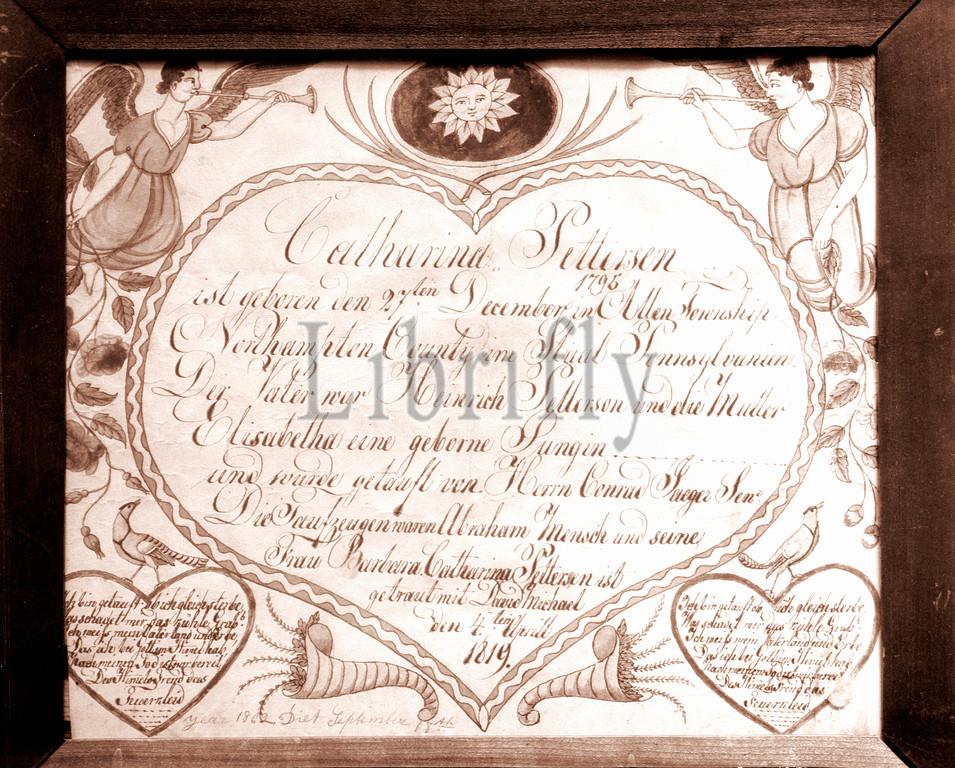 Catharina Pettersen
ist geboren den 27ten December 1795 in Allen Township
Northampton County im Staat Pennsylvanien
Der Vater war Heinrich Petterson und die Mutter
Elisabetha eine geborne Jungin
und wurde getauft von Herrn Conrad Jaeger Senr
Die Taufzeugen waren Abraham Mensch und seine
Frau Barbara Catharina Pettersen ist
getraut mit Michael
den 4ten April
1819.
Ich bin getauft ob ich gleich sterbe
Was schadet mir das kühle Grab
Ich weis mein Vaterland und Erbe
Das ich bei
Nach meinem Tod ist mir bereit
Des Himels Freud das
Feuerkleid
Ich bin getauft ob ich gleich sterbe
Was schadet mir das kühle Grab
Ich weis mein Vaterland und Erbe
Das ich bei
Nach meinem Tod ist mir bereit
Des Himels Freud das
Feuerkleid
year 18 Diet September
Librifly